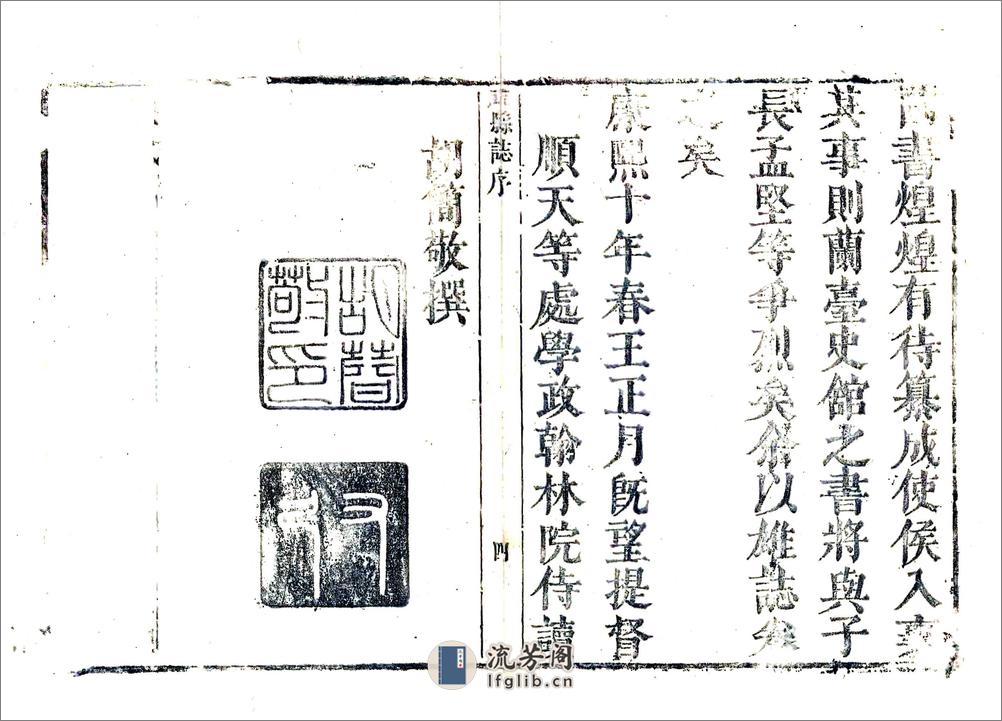 書煌煌有待纂成使侯入
其事則蘭臺史館之書將與子
長孟堅等爭烈矣以雄誌矣
矣
康熙十年春王正月既望提督
順天等處學政翰林院侍讀
雄縣誌序
四
胡簡敬撰
胡簡敬印
又弓
流芳阁
lfglib.cn